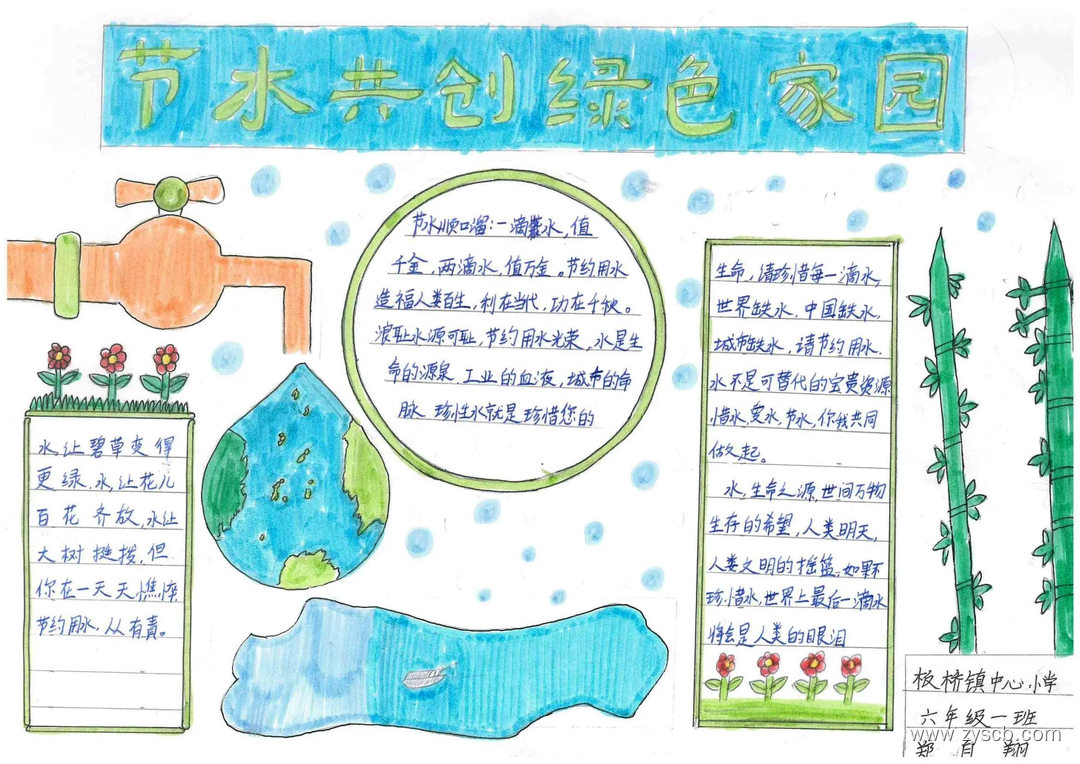 节水共创绿色家园
节水顺口溜:一滴水,值
千金,两滴水,值万金。节约用水
造福人类百生,利在当代,功在千秋。
浪耻水源可耻,节约用水光荣,水是生
命的源泉、工业的血液,城市的命
脉 珍性水就是珍惜您的
生命,请珍惜每一滴水,
世界缺水,中国缺水,
城市缺水,请节约用水.
水不是可替代的宝贵资源
惜水,爱水,节水,你我共同
做起。
水,生命之源,世间万物
生存的希望,人类明天,
人类文明的摇篮,如果不
珍惜水,世界上最后一滴水
将会是人类的眼泪
水,让碧草变得
更绿,水,让花儿
百花齐放,水让
大树挺拨,但
你在一天天憔悴
节约用水,从有责。
板桥镇中心小学
六年级一班
www.zyscb.com
郑自翔